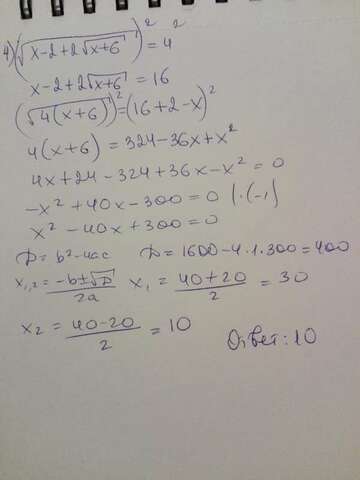 4) (√(x-2+2√(x+6)))² = 4²
x-2+2√(x+6) = 16
(√(4(x+6)))² = (16+2-x)²
4(x+6) = 324-36x+x²
4x+24-324+36x-x² = 0
-x²+40x-300 = 0 |·(-1)
x²-40x+300 = 0
D = b²-4ac D = 1600-4·1·300 = 400
x₁,₂ = (-b±√D)/2a x₁ = (40+20)/2 = 30
x₂ = (40-20)/2 = 10
Ответ: 10